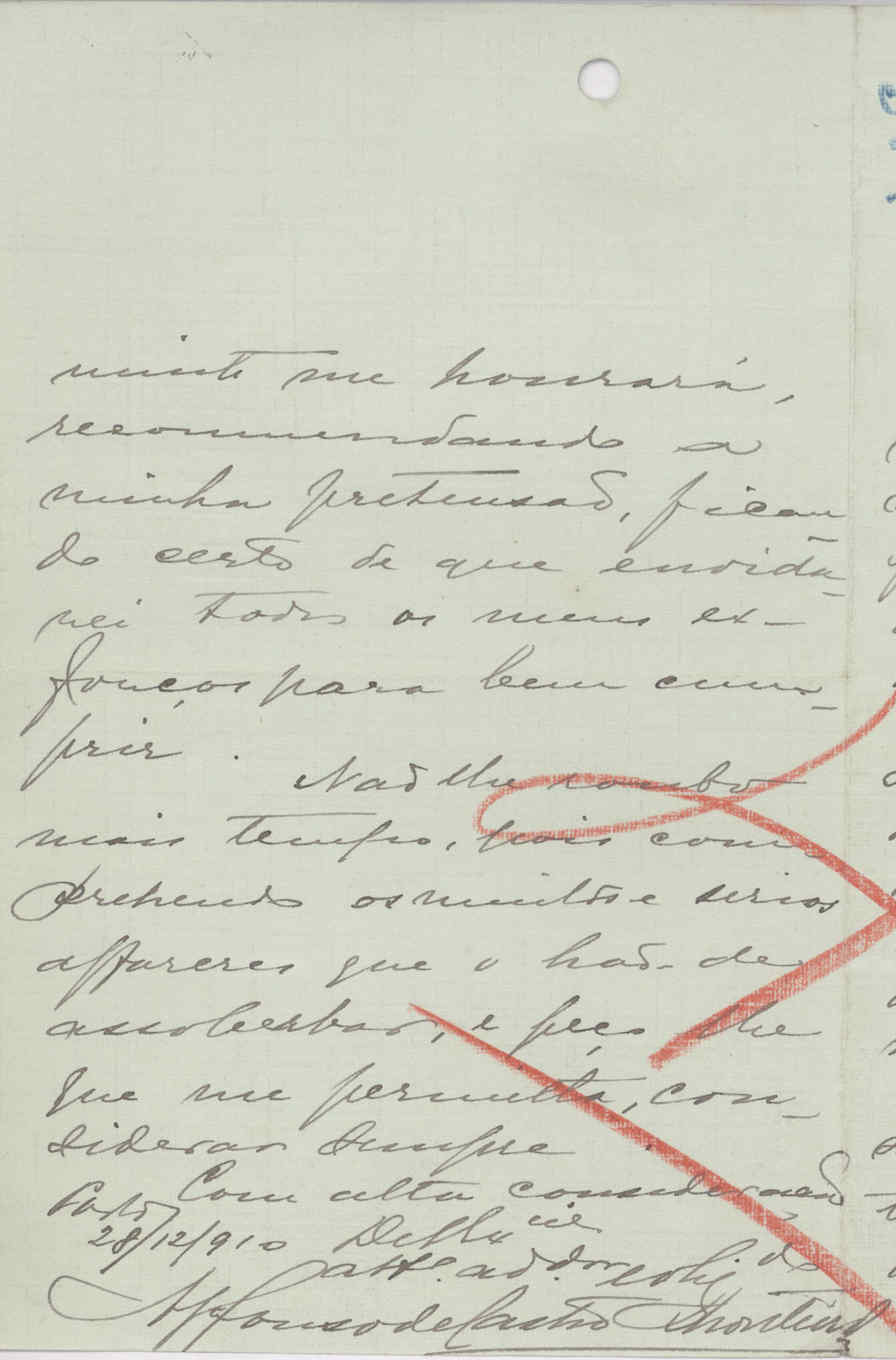 mente me honrará,
recommendando a
minha pretensaõ, fican
do certo de que envida-
rei todos os meus ex-
forços para bem cum-
prir.
Naõ lhe roubo
mais tempo, pois com
prehendo os muitos e serios
affareres que o haõ-de
assoberbar, e peço lhe
que me permitta, con-
siderar sempre
Com alta consideraçaõ
Porto
28/12/910 De V. Ex.cia
att.º ad.dor e obg.do
Affonso de Castro Monteiro